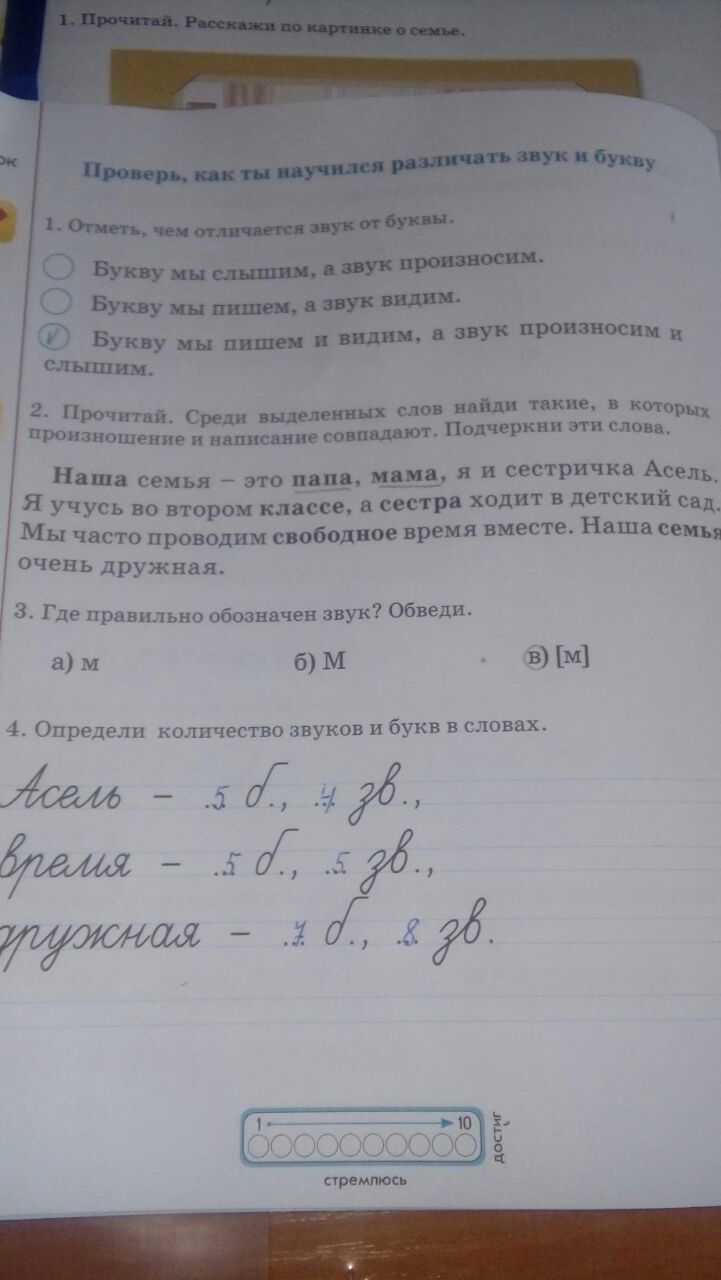 1. Прочитай. Расскажи по картинке о семье.
ок
Проверь, как ты научился различать звук и букву
1. Отметь, чем отличается звук от буквы.
Букву мы слышим, а звук произносим.
Букву мы пишем, а звук видим.
Букву мы пишем и видим, а звук произносим и
слышим.
2. Прочитай. Среди выделенных слов найди такие, в которых
произношение и написание совпадают. Подчеркни эти слова.
Наша семья – это папа, мама, я и сестричка Асель.
Я учусь во втором классе, а сестра ходит в детский сад.
Мы часто проводим свободное время вместе. Наша семья
очень дружная.
3. Где правильно обозначен звук? Обведи.
а) м б) М в) [м]
4. Определи количество звуков и букв в словах.
Асель – 5 б., 4 зв.,
время – 5 б., 5 зв.,
дружная – 7 б., 8 зв.
1 10
достиг
стремлюсь